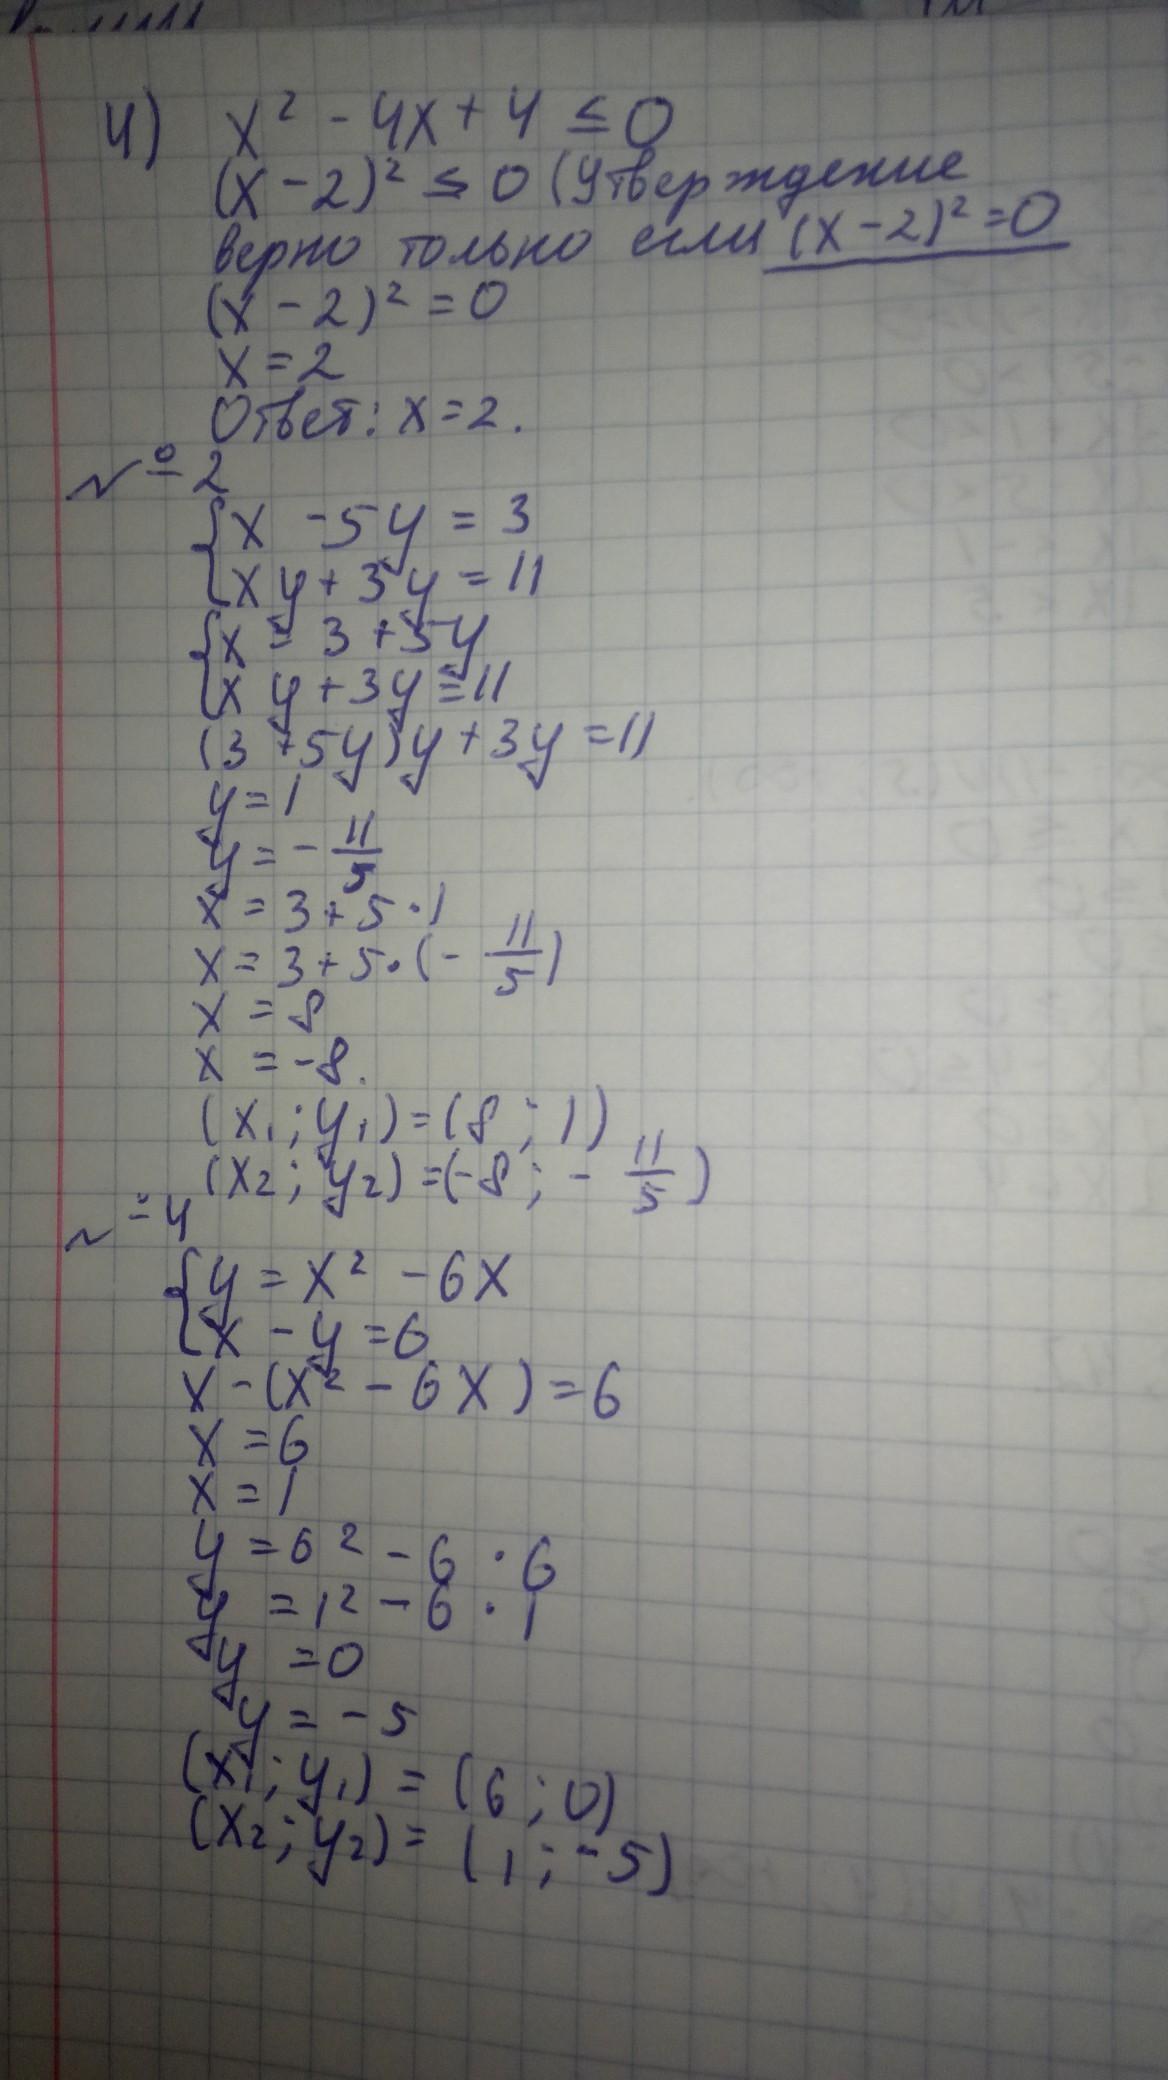 4) x² - 4x + 4 ≤ 0
(x - 2)² ≤ 0 (Утверждение
верно только если (x - 2)² = 0
(x - 2)² = 0
x = 2
Ответ: x = 2.
№ 2
{x - 5y = 3
{xy + 3y = 11
{x = 3 + 5y
{xy + 3y = 11
(3 + 5y)y + 3y = 11
y = 1
y = - 11/5
x = 3 + 5 · 1
x = 3 + 5 · (- 11/5)
x = 8
x = -8.
(x₁; y₁) = (8; 1)
(x₂; y₂) = (-8; - 11/5)
№ 4
{y = x² - 6x
{x - y = 6
x - (x² - 6x) = 6
x = 6
x = 1
y = 6² - 6 · 6
y = 1² - 6 · 1
y = 0
y = -5
(x₁; y₁) = (6; 0)
(x₂; y₂) = (1; -5)